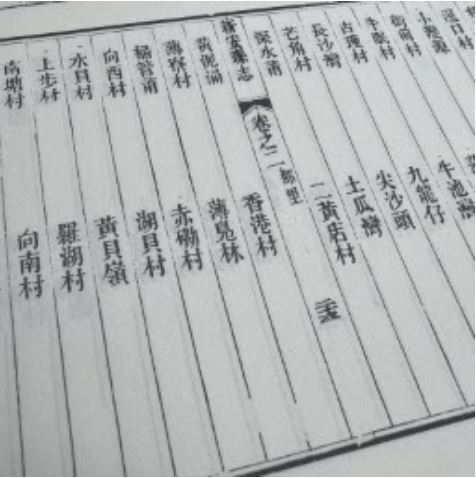 小瀝源
衙前村
牛眠村 牛池灣
古瑾村 九龍仔
長沙灣 尖沙頭
芒角村 土瓜灣
深水莆 二黃店村
新安縣志 卷之二 都里
黃泥涌 香港村
薄寮村 薄鳧林
掃管莆 赤磡村
向西村 湖貝村
水貝村 黃貝嶺
上步村 羅湖村
南塘村 向南村